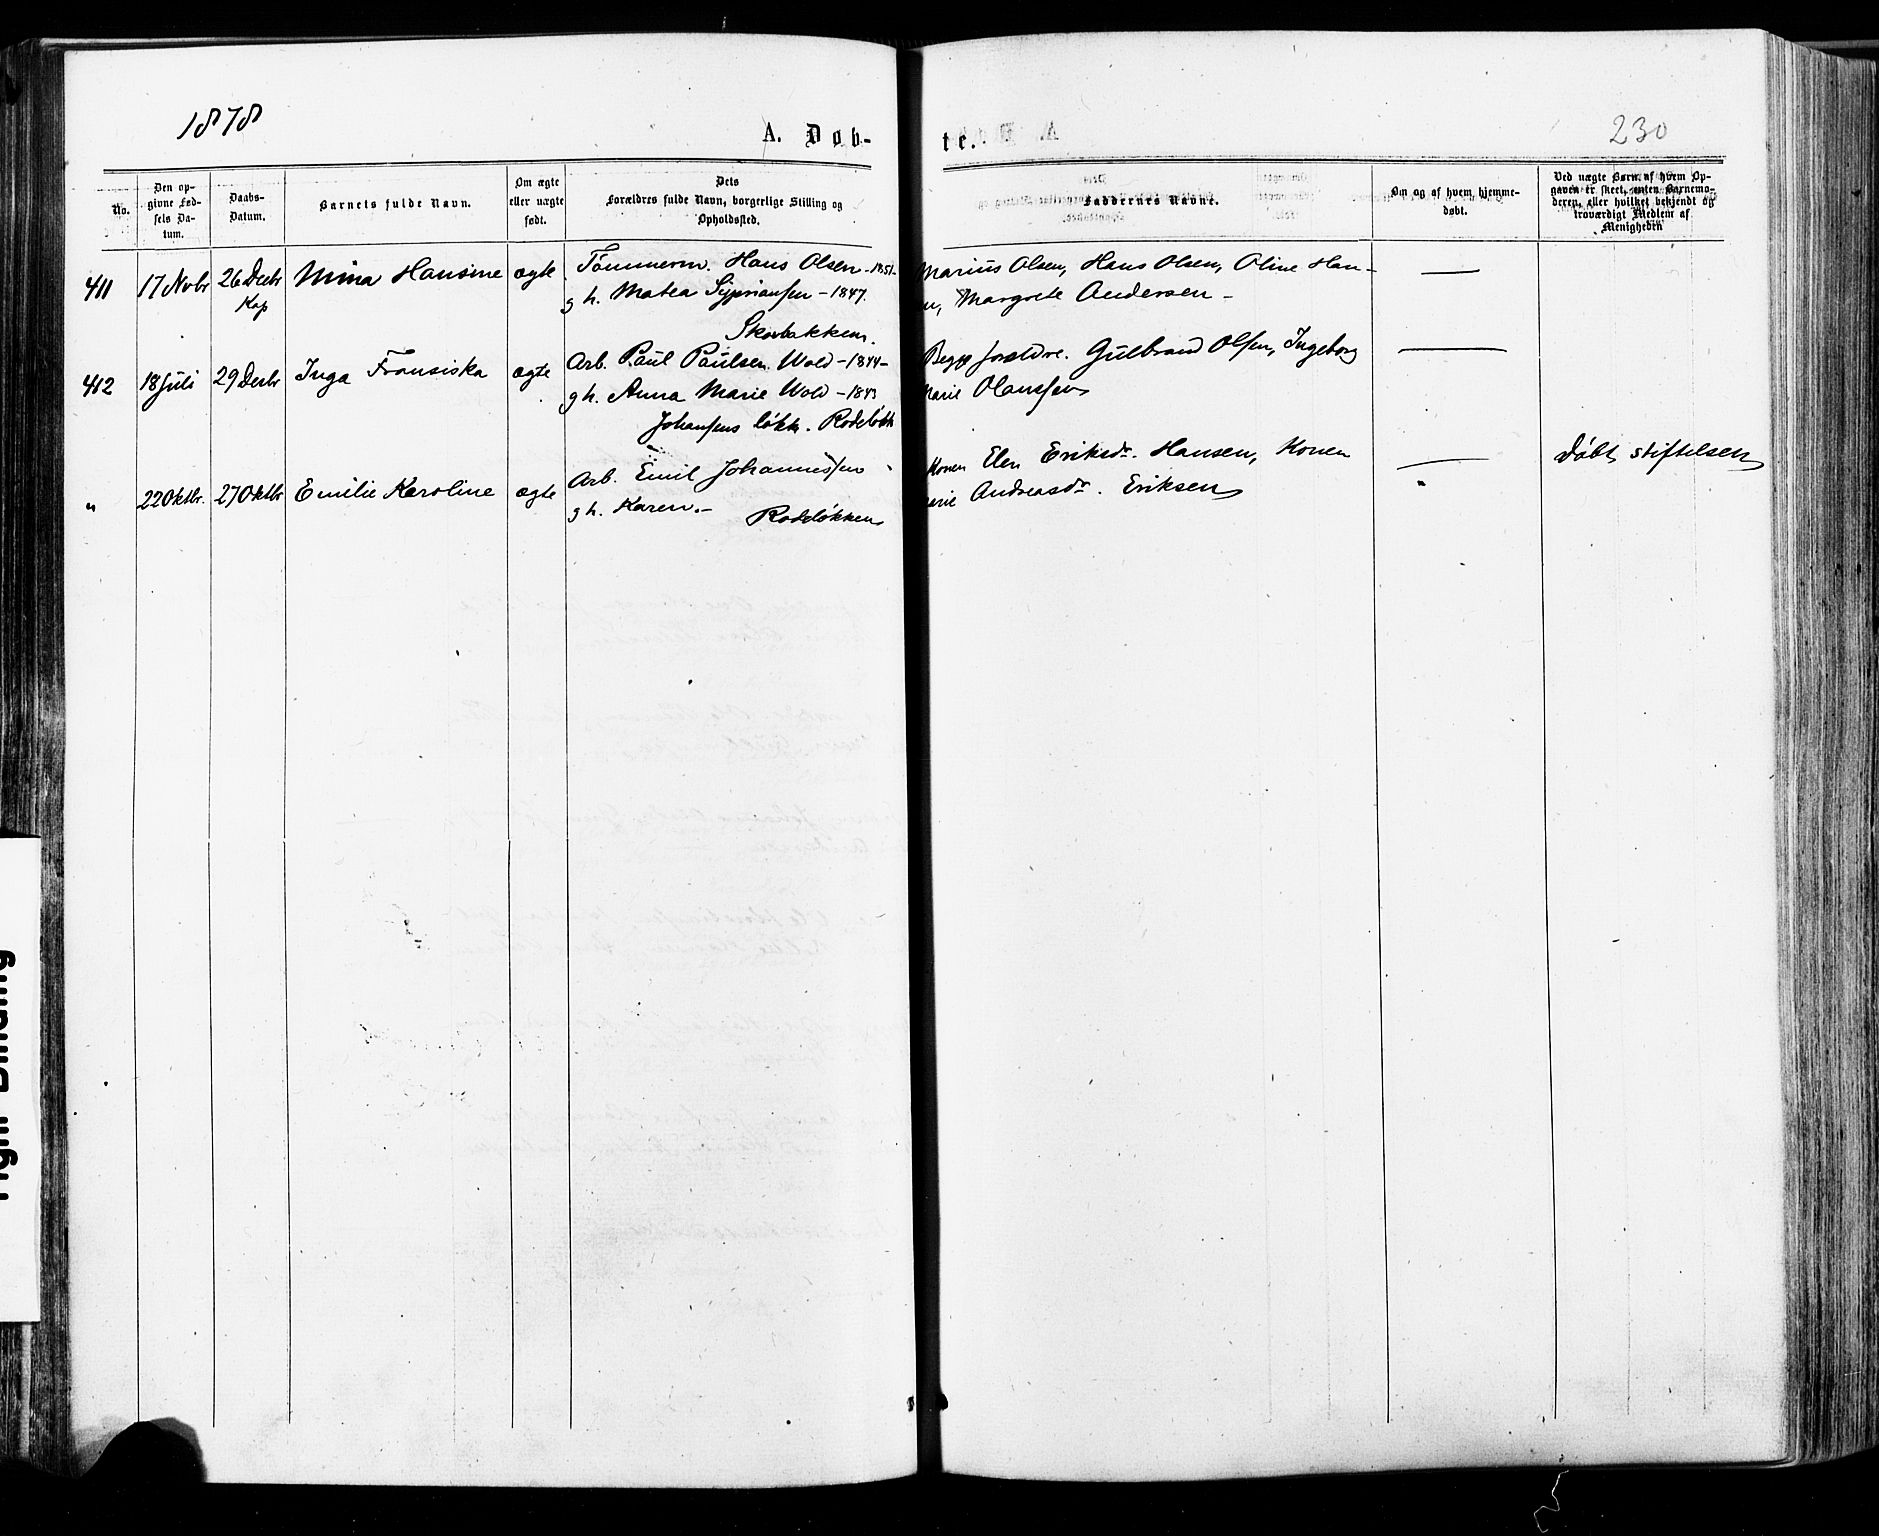 1878
A. Døb-
te.
230
No.
Den op-
givne Fød-
sels Da-
tum.
Daabs-
Datum.
Barnets fulde Navn.
Om ægte
eller uægte
født.
Dets
Forældres fulde Navn, borgerlige Stilling og
Opholdssted.
Faddernes Navne.
Om og af hvem hjemme-
døbt.
Ved uægte Børn af hvem Op-
gaven er skeet, enten Barnemo-
deren, eller hvilket bekjendt og
troværdigt Medlem af
Menigheden
411 17 Novbr 26 Decbr Mina Hansine ægte Tømmerm. Hans Olsen - 1851 -
Kap
g h. Matea Sypriansen - 1847.
Skovbakken.
Marius Olsen, Hans Olsen, Oline Han-
Margrete Andersen -
412 18 Juli 29 Decbr Inga Fransiska ægte Arb. Paul Paulsen Wold - 1844 -
g h. Anna Marie Wold - 1843
Johansens løkk. Rodeløkk
Begge forældre. Gulbrand Olsen, Ingeborg
Marie Olaussen
" 22 Oktbr. 27 Oktbr Emilie Karoline ægte Arb. Emil Johannessen
g h. Karen. - Rodeløkken
Konen Elen Eriksdr. Hansen, Konen
Marie Andreasdr. Eriksen
"
Døbt Stiftelsen
Tight Binding